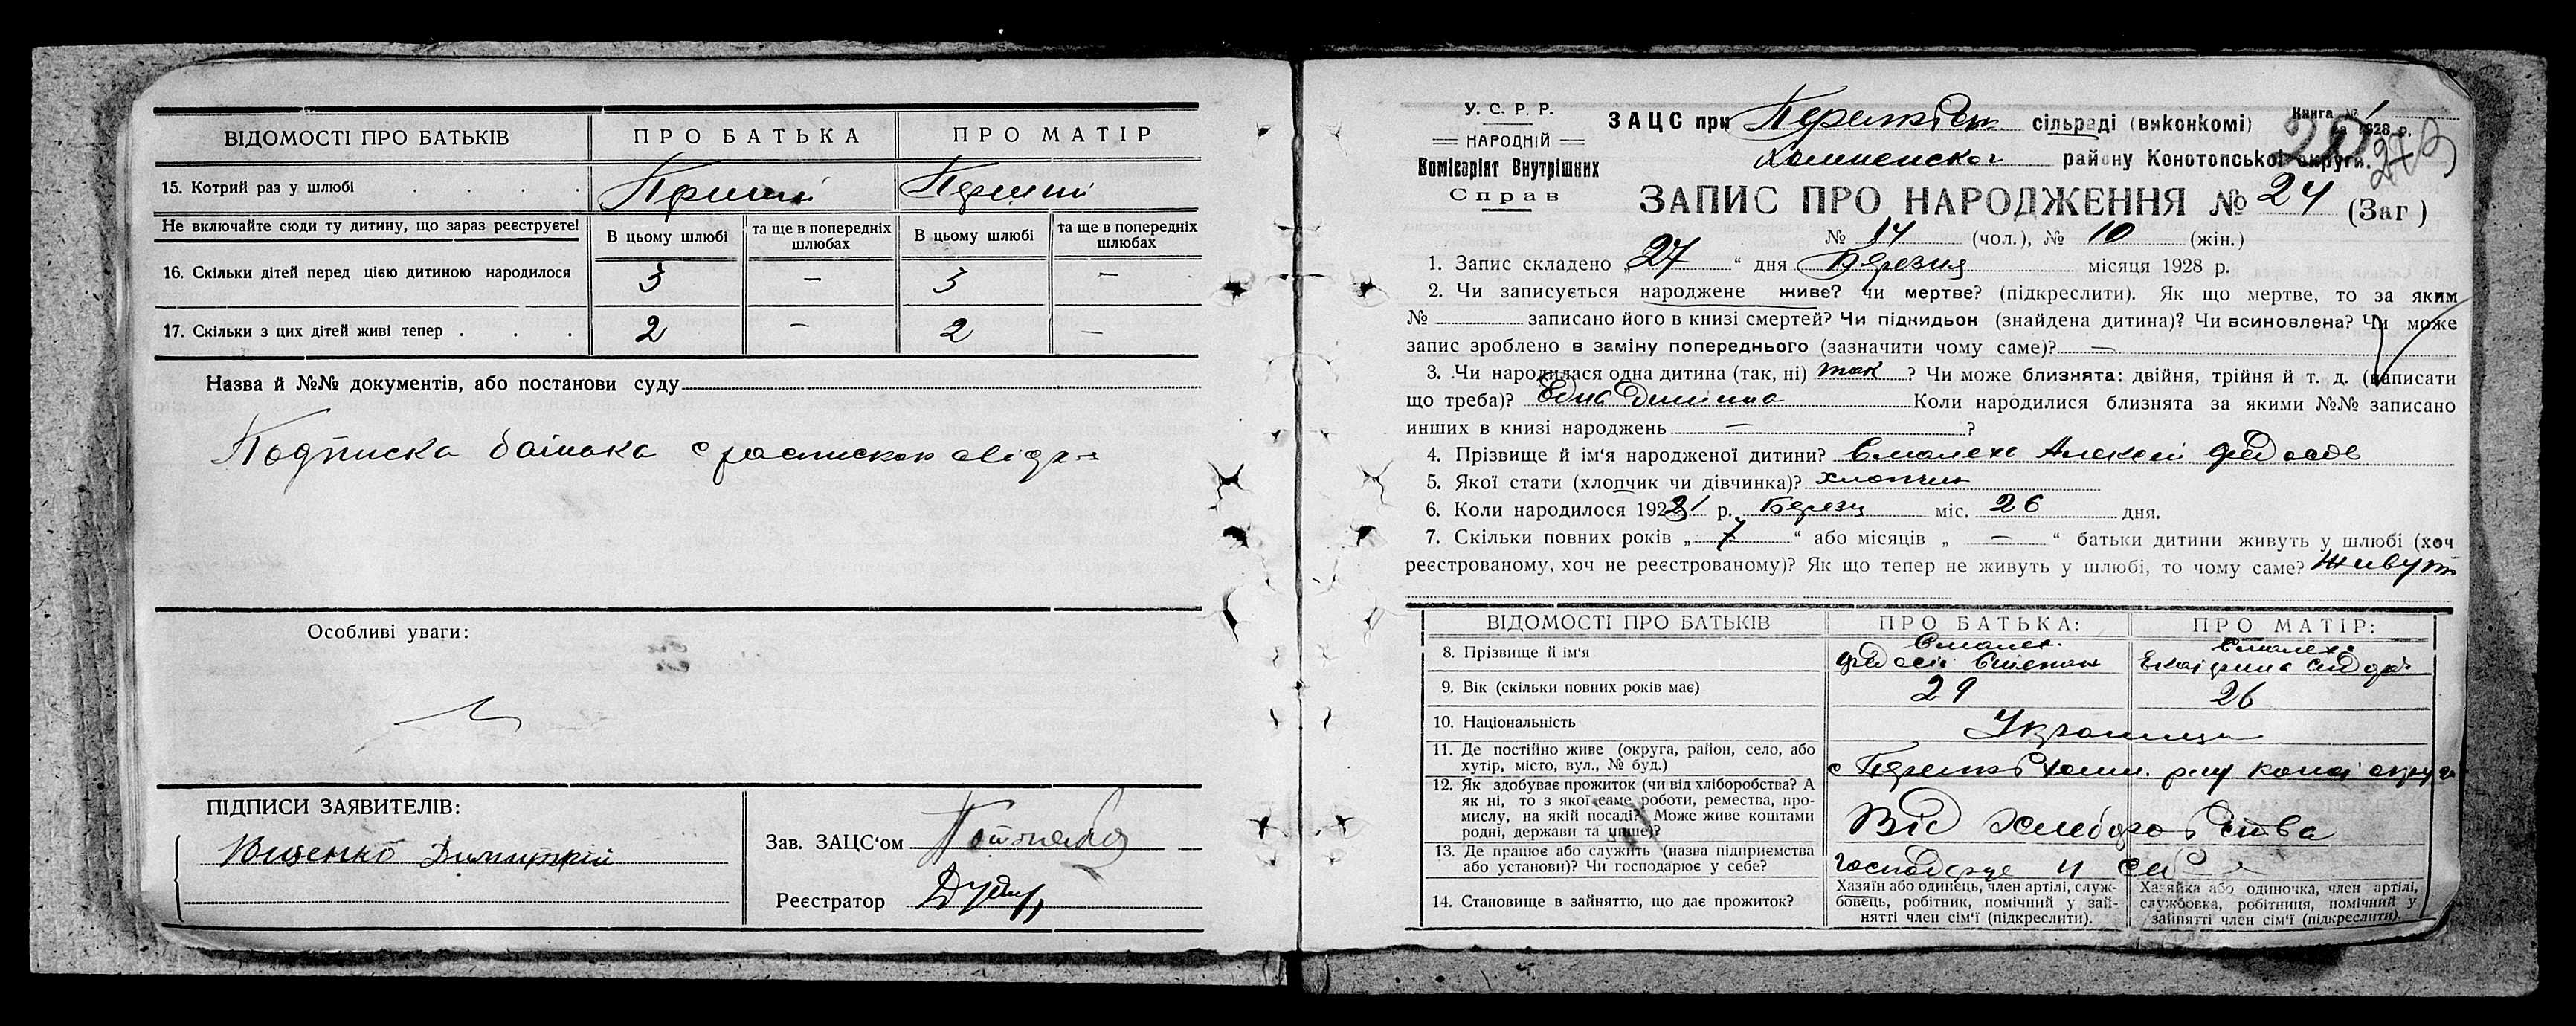 ВІДОМОСТІ ПРО БАТЬКІВ ПРО БАТЬКА ПРО МАТІР
15. Котрий раз у шлюбі . . . .
Не включайте сюди ту дитину, що зараз реєструєте!
В цьому шлюбі та ще в попередніх шлюбах В цьому шлюбі та ще в попередніх шлюбах
16. Скільки дітей перед цією дитиною народилося 3 — 3 —
17. Скільки з цих дітей живі тепер . . . 2 — 2 —
Назва й №№ документів, або постанови суду
Подписка батька с
Особливі уваги:
ПІДПИСИ ЗАЯВИТЕЛІВ:
Ющенко Димитрій
Зав. ЗАЦС‘ом
Реєстратор
У. С. Р. Р.
НАРОДНІЙ
Комісаріят Внутрішних
Справ
Книга № 1
за 1928 р.
ЗАЦС при сільраді (виконкомі)
району Конотопської округи.
ЗАПИС ПРО НАРОДЖЕННЯ № 24 (Заг )
№ 14 (чол.), № 10 (жін.)
1. Запис складено „ 27 “ дня Березня місяця 1928 р.
2. Чи записується народжене живе? чи мертве? (підкреслити). Як що мертве, то за яким
№ записано його в книзі смертей? Чи підкидьок (знайдена дитина)? Чи всиновлена? Чи може
запис зроблено в заміну попереднього (зазначити чому саме)? —
3. Чи народилася одна дитина (так, ні) так ? Чи може близнята: двійня, трійня й т. д. (написати
що треба)? Една Дитина Коли народилися близнята за якими №№ записано
инших в книзі народжень — ?
4. Прізвище й ім‘я народженої дитини? Алексей
5. Якої стати (хлопчик чи дівчинка)? хлопчик
6. Коли народилося 192 р. міс. 26 дня.
7. Скільки повних років „ 7 “ або місяців „ — “ батьки дитини живуть у шлюбі (хоч
реєстрованому, хоч не реєстрованому)? Як що тепер не живуть у шлюбі, то чому саме? Живут
ВІДОМОСТІ ПРО БАТЬКІВ ПРО БАТЬКА: ПРО МАТІР:
8. Прізвище й ім‘я
9. Вік (скільки повних років має) 29 26
10. Національність Украинци
11. Де постійно живе (округа, район, село, або
хутір, місто, вул., № буд.)
12. Як здобуває прожиток (чи від хліборобства? А
як ні, то з якої саме роботи, ремества, про-
мислу, на якій посаді? Може живе коштами
родні, держави та инше)?
Від хлеборобства
13. Де працює або служить (назва підприємства
або установи)? Чи господарює у себе?
14. Становище в зайняттю, що дає прожиток?
Хазяїн або одинець, член артілі, служ-
бовець, робітник, помічний у зай-
нятті член сім‘ї (підкреслити).
Хазяйка або одиночка, член артілі,
службовка, робітниця, помічний у
зайнятті член сім‘ї (підкреслити).